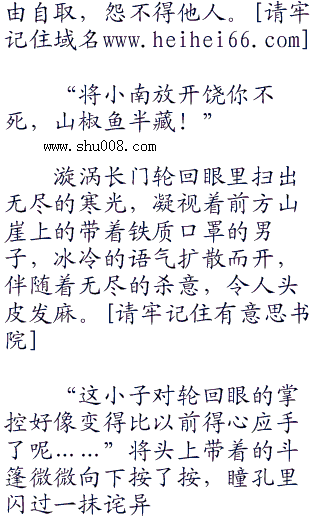 由自取，怨不得他人。[请牢
记住域名www.heihei66.com]
“将小南放开饶你不
死，山椒鱼半藏！”
www.shu008.com
漩涡长门轮回眼里扫出
无尽的寒光，凝视着前方山
崖上的带着铁质口罩的男
子，冰冷的语气扩散而开，
伴随着无尽的杀意，令人头
皮发麻。[请牢记住有意思书
院]
“这小子对轮回眼的掌
控好像变得比以前得心应手
了呢……”将头上带着的斗
篷微微向下按了按，瞳孔里
闪过一抹诧异